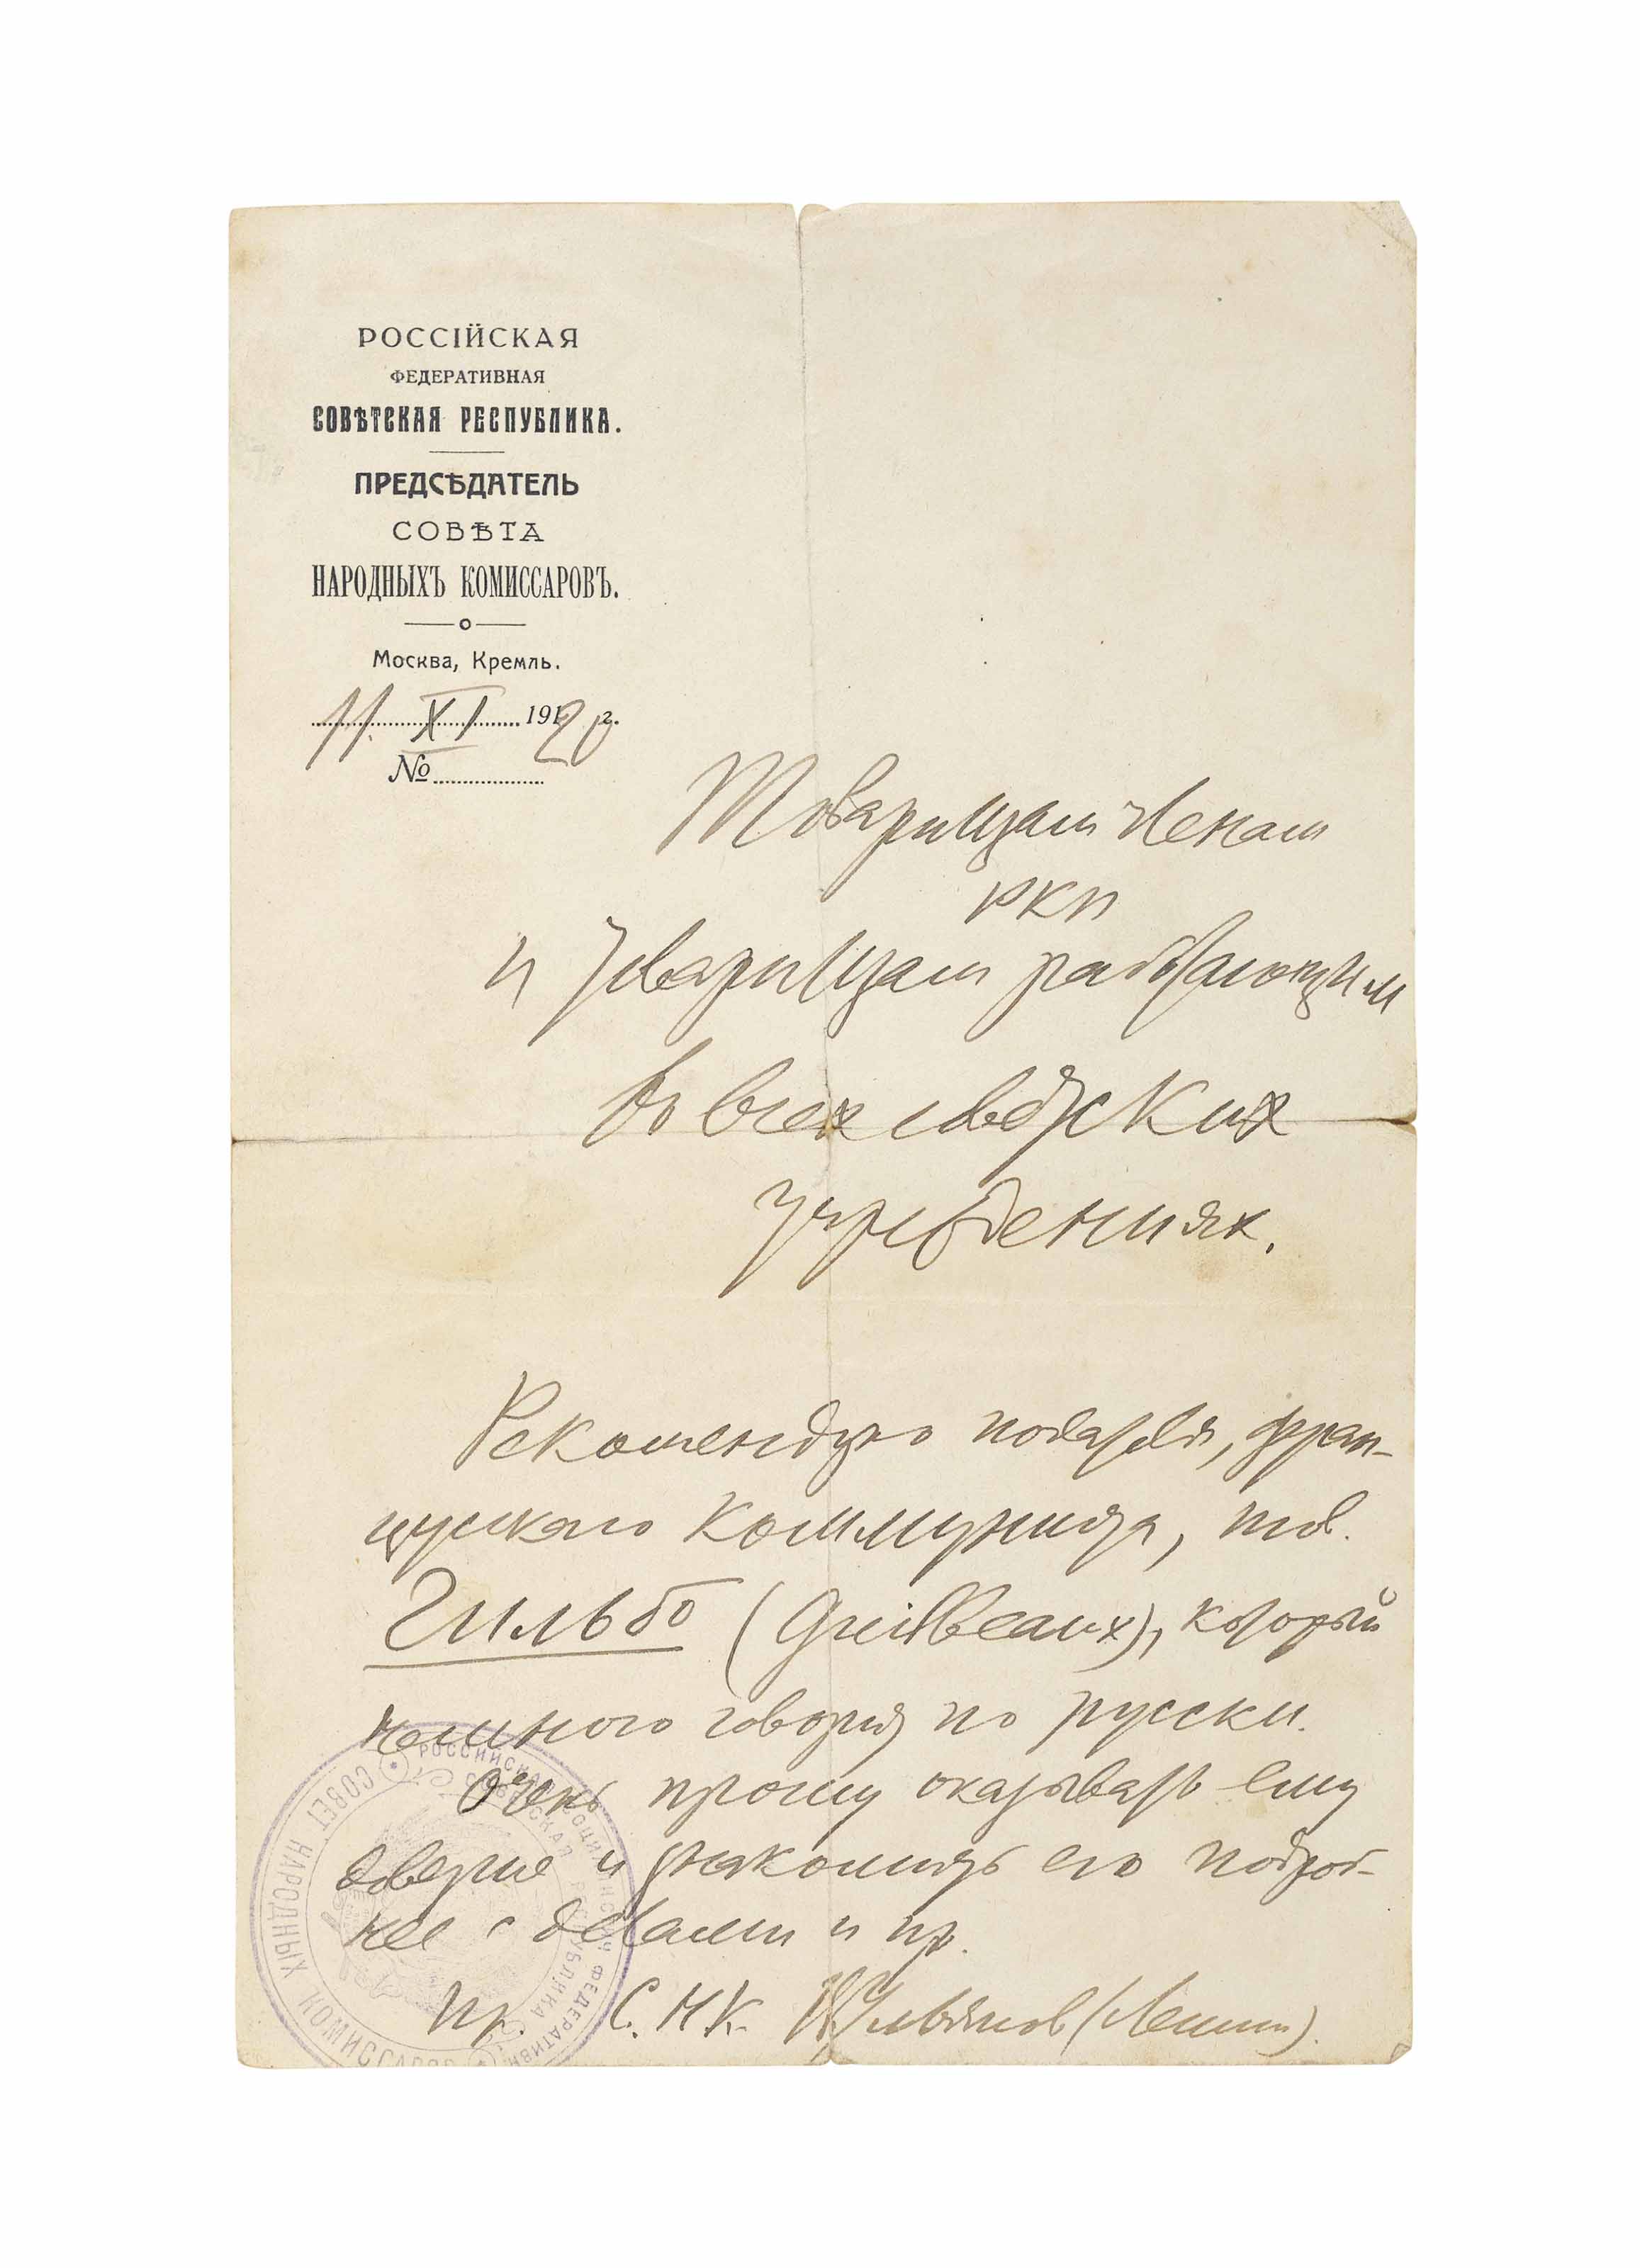 РОССІЙСКАЯ
ФЕДЕРАТИВНАЯ
СОВѢТСКАЯ РЕСПУБЛИКА.
ПРЕДСѢДАТЕЛЬ
СОВѢТА
НАРОДНЫХЪ КОМИССАРОВЪ.
Москва, Кремль.
11. XI 1920 г.
№
Товарищам членам
РКП
и товарищам работающим
во всех советских
учреждениях.
Рекомендую подателя, фран-
цузского коммуниста, тов.
Гильбо (Guilbeaux), который
немного говорит по русски.
Очень прошу оказывать ему
доверие и знакомить его подроб-
нее с делами и пр.
Пр. С.Н.К. В. Ульянов (Ленин).
РОССИЙСКАЯ СОЦИАЛИСТИЧ ФЕДЕРАТИВН
СОВЕТСКАЯ РЕСПУБЛИКА
СОВЕТ НАРОДНЫХ КОМИССАРОВ